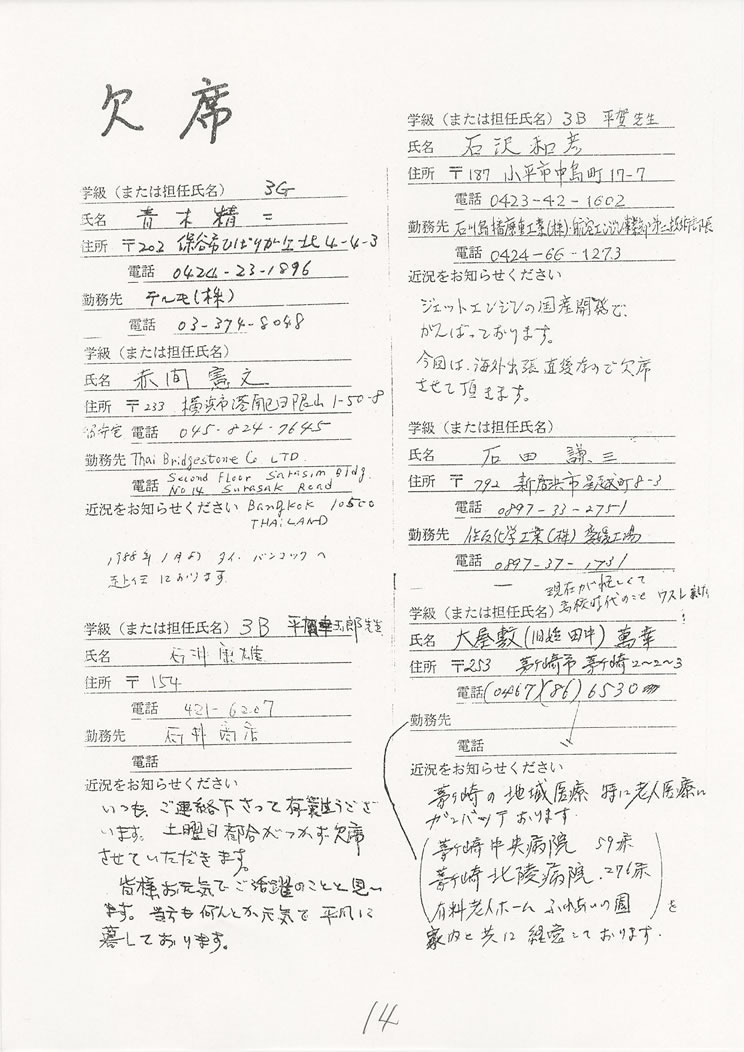 欠席
学級（または担任氏名） 3G
氏名 青木精二
住所 〒202 保谷市ひばりが丘北4-4-3
電話 0424-23-1896
勤務先 テルモ(株)
電話 03-374-8048
学級（または担任氏名）
氏名 赤間憲文
住所 〒233 横浜市港南区日限山1-50-8
留守宅 電話 045-824-7645
勤務先 Thai Bridgestone Co LTD.
電話 Second Floor Sarasim Bldg.
No.14 Surasak Road
近況をお知らせください Bangkok 10500
THAILAND
1988年1月より タイ、バンコックへ
赴任しております。
学級（または担任氏名） 3B 平賀 五郎先生
氏名 石井康雄
住所 〒154
電話 421-6207
勤務先 石井商店
電話
近況をお知らせください
いつも、ご連絡下さって有難うござ
います。土曜日都合がつかず欠席
させていただきます。
皆様お元気でご活躍のことと思い
ます。当方も何んとか元気で平凡に
暮しております。
学級（または担任氏名） 3B 平賀先生
氏名 石沢和彦
住所 〒187 小平市中島町17-7
電話 0423-42-1602
勤務先 石川島播磨重工業(株)・航空エンジン事業部・第二技術部長
電話 0424-66-1273
近況をお知らせください
ジェットエンジンの国産開発で、
がんばっております。
今回は、海外出張直後なので欠席
させて頂きます。
学級（または担任氏名）
氏名 石田謙三
住所 〒792 新居浜市星越町8-3
電話 0897-33-2751
勤務先 住友化学工業(株) 愛媛工場
電話 0897-37-1731
現在が忙しくて
高校時代のこと ワスレました!
学級（または担任氏名）
氏名 大屋敷(旧姓 田中) 萬幸
住所 〒253 茅ヶ崎市茅ヶ崎2~2~3
電話 (0467)(86)6530
勤務先
電話
近況をお知らせください
茅ヶ崎の地域医療 特に老人医療に
ガンバッテおります
茅ヶ崎中央病院 59床
茅ヶ崎北陵病院 276床
有料老人ホーム ふれあいの園 を
家内と共に経営しております.
14